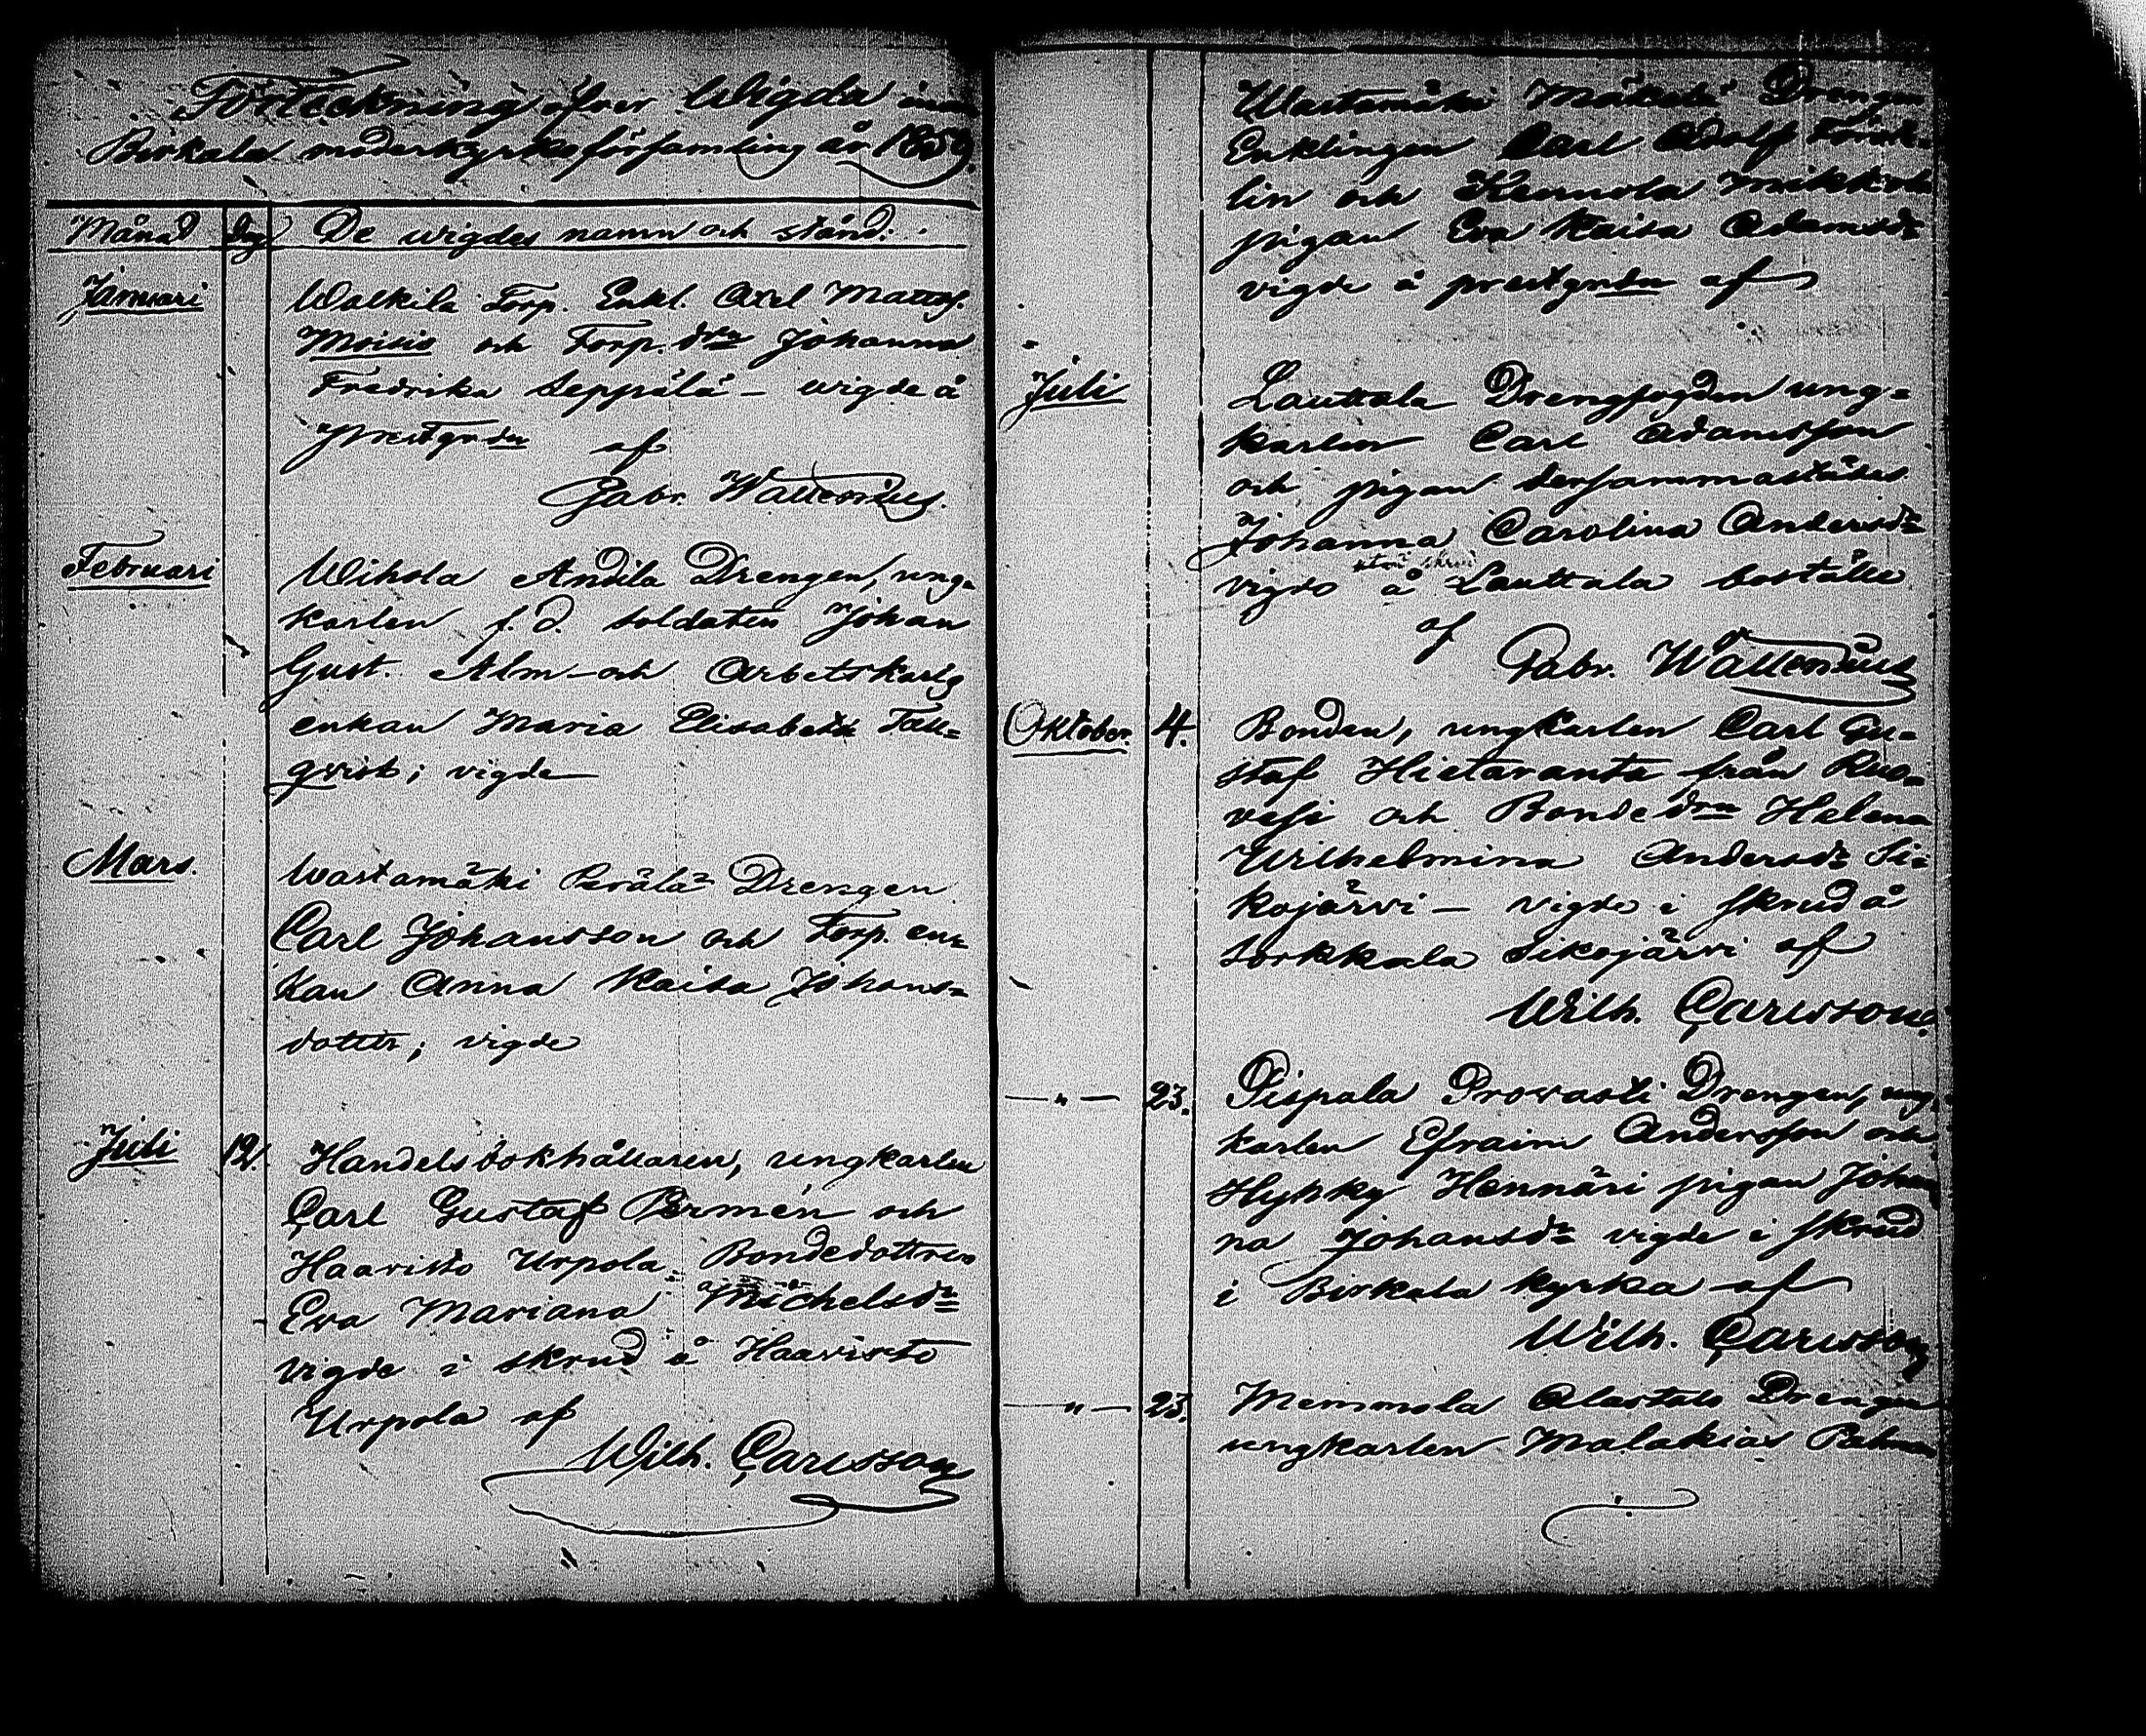 Förteckning öfver Wigda inom
Birkala moderkyrko församling år 1859.
Månad dag De wigdes namn och stånd.
Januari Walkila Torp. Enkl. Axel Mattss.
Moisio och Torp. drn Johanna
Fredrika Seppälä – wigde å
prestgrden af
Gabr. Wallenius.
Februari Wihola Andila Drengen, ung-
karlen f. d. soldaten Johan
Gust. Alm – och Arbetskarls
enkan Maria Elisabeth Täll-
qvist; vigde
Mars. Wastamäki Perälä Drengen
Carl Johansson och Torp. en-
kan Anna Kaisa Johans-
dotter; vigde
Juli 12. Handelsbokhållaren, ungkarlen
Carl Gustaf Permén och
Haavisto Urpola Bondedottren
Eva Mariana Michelsdr
vigde i skrud å Haavisto
Urpola af
Wilh. Carlsson
Wastamäki Mäkelä Drengen
Enklingen Carl Adolf
lin och Mikkola
pigan Eva Kaisa Adamsdr
vigde å prestgrden af
Juli Lauttala Drengfogden ung-
karlen Carl Adamsson
och pigan dersammastädes
Johanna Carolina Andersdr
utan skrud
vigde å Lauttala boställe
af
Gabr. Wallenius
Oktober. 4. Bonden, ungkarlen Carl Gu-
staf Hietaranta från Ruo-
vesi och Bonde drn Helena
Wilhelmina Andersdr Si-
kojärvi – vigde i skrud å
Sorkkala Sikojärvi af
Wilh. Carlsson.
—"— 23. Pispala Provasti Drengen, ung-
karlen Efraim Andersson och
Hyhky Hennäri pigan Johan
na Johansdr vigde i skrud
i Birkala kyrka af
Wilh. Carlsson
—"— 23. Memmola Alastalo Drengen
ungkarlen Malakias